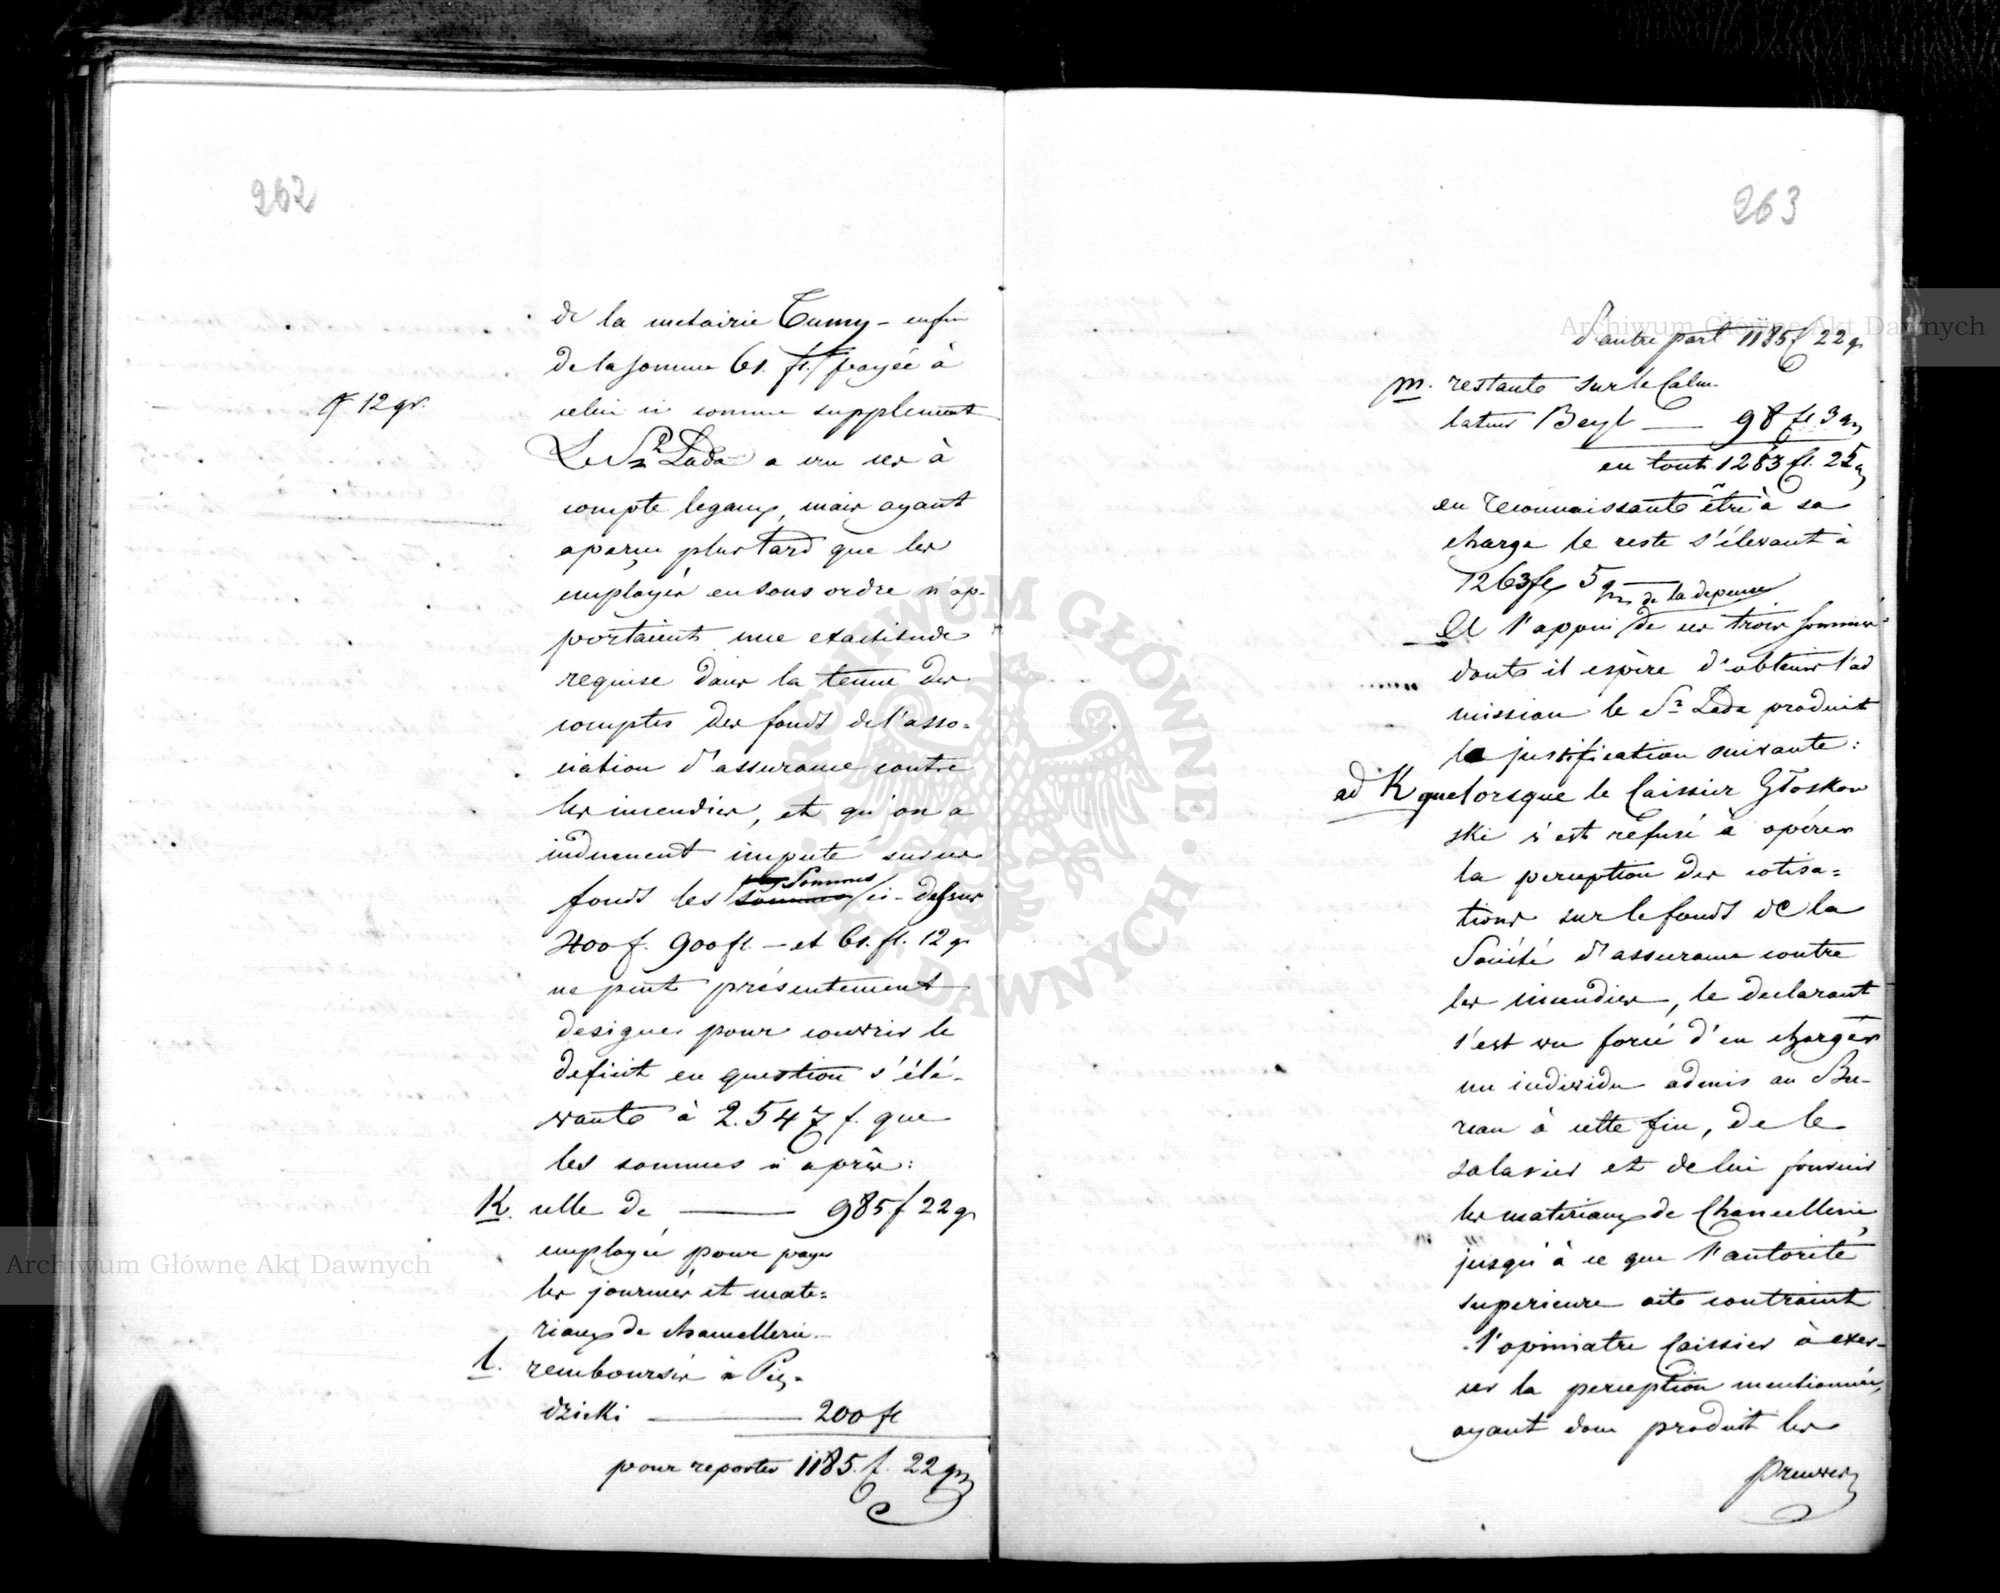 262
de la metairie Tumy - enfin
de la somme 61. fl. payée à
12 gr.
celui ci comme supplement
Le Sr Lada a cru ces à
compte legaux, mais ayant
aperçu plus tard que les
employés en sous ordre n'ap-
portaient une exactitude
requise dans la tenue des
comptes des fonds de l'asso-
ciation d'assurance contre
les incendies, et qu'on a
induement imputé sur ces
fonds les sommes ci-dessus
400 f. 900 fl. - et 61. fl. 12 g
ne peut présentement
designer pour couvrir le
deficit en question s'éle-
vante à 2.547 f. que
les sommes ci après:
K. celle de 985 f 22 g
employée pour payer
les journées et mate-
riaux de chancellerie
l. remboursés à Pię-
dzicki 200 fl
pour reporter 1185. f. 22 gr
263
D'autre part 1185 f 22 g
m. restante sur le Calcu-
lateur Beyl 98 fl. 3 gr
en tout 1283 fl. 25 g
en reconnaissante être à sa
charge le reste s'élevant à
1263 fl 5 gr de la depense
A l'appui de ces trois sommes
dont il espère d'obtenir l'ad
mission le Sr Lada produit
la justification suivante:
ad K que lorsque le Caissier Głoskow
ski s'est refusé à opérer
la perception des cotisa-
tions sur le fonds de la
Société d'assurance contre
les incendies, le declarant
s'est vu forcé d'en charger
un individu admis au Bu-
reau à cette fin, de le
salarier et de lui fournir
les materiaux de Chancellerie
jusqu'à ce que l'autorité
superieure ait contraint
l'opiniatre Caissier à exer-
cer la perception mentionnée,
ayant donc produit les
preuves
Archiwum Główne Akt Dawnych
Archiwum Główne Akt Dawnych
ARCHIWUM GŁÓWNE AKT DAWNYCH